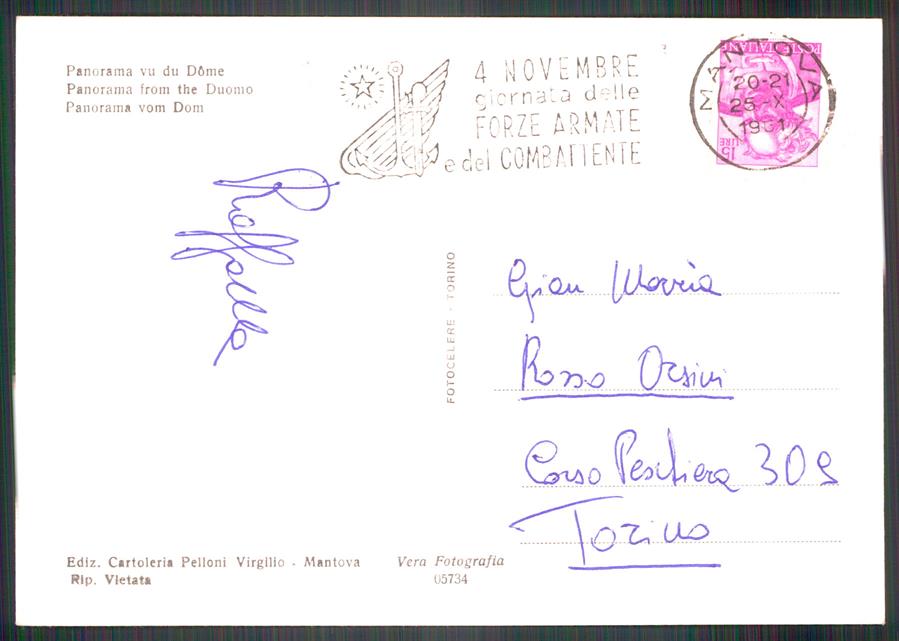 Panorama vu du Dôme
Panorama from the Duomo
Panorama vom Dom
4 NOVEMBRE
giornata delle
FORZE ARMATE
e del COMBATTENTE
MANTOVA
20-21
25-X
1961
POSTE ITALIANE
LIRE 15
Raffaella
FOTOCELERE - TORINO
Gian Maria
Rosso Orsini
Corso Peschiera 309
Torino
Ediz. Cartoleria Pelloni Virgilio - Mantova
Rip. Vietata
Vera Fotografia
05734